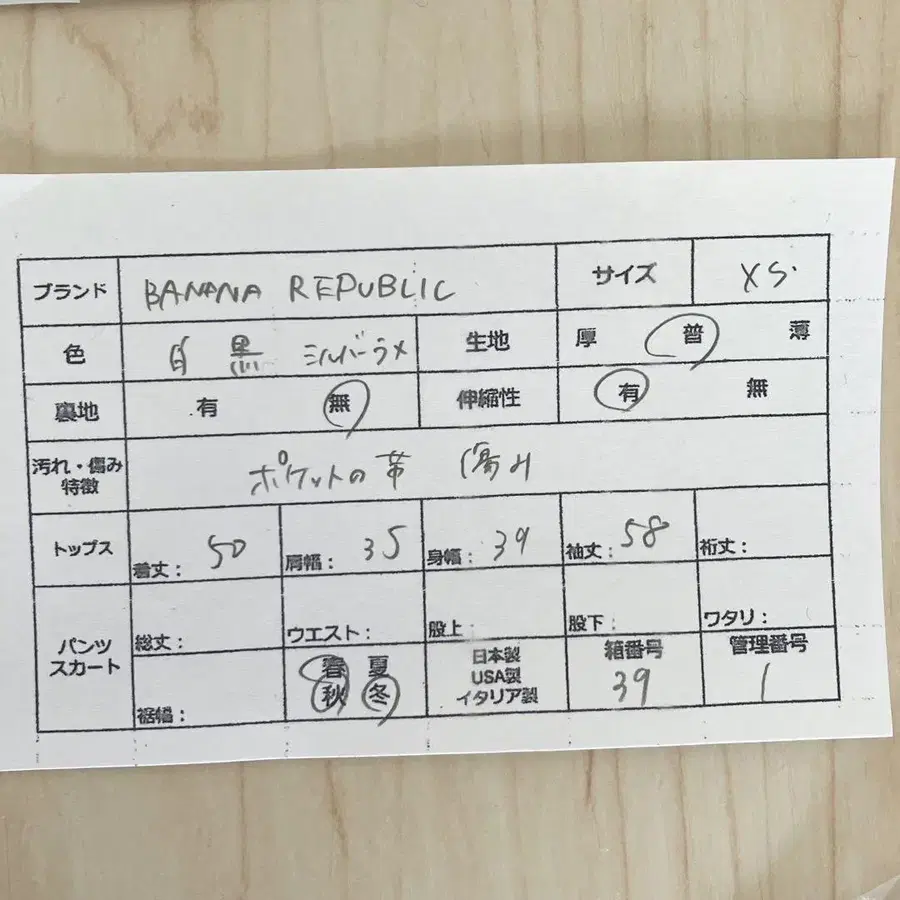 ブランド BANANA REPUBLIC サイズ XS
色 白 黒 シルバーラメ 生地 厚 普 薄
裏地 有 無 伸縮性 有 無
汚れ・傷み
特徴 ポケットの帯 傷み
トップス 着丈: 50 肩幅: 35 身幅: 39 袖丈: 58 裄丈:
パンツ
スカート 総丈: ウエスト: 股上: 股下: ワタリ:
裾幅: 春 夏
秋 冬
日本製
USA製
イタリア製
箱番号
39
管理番号
1